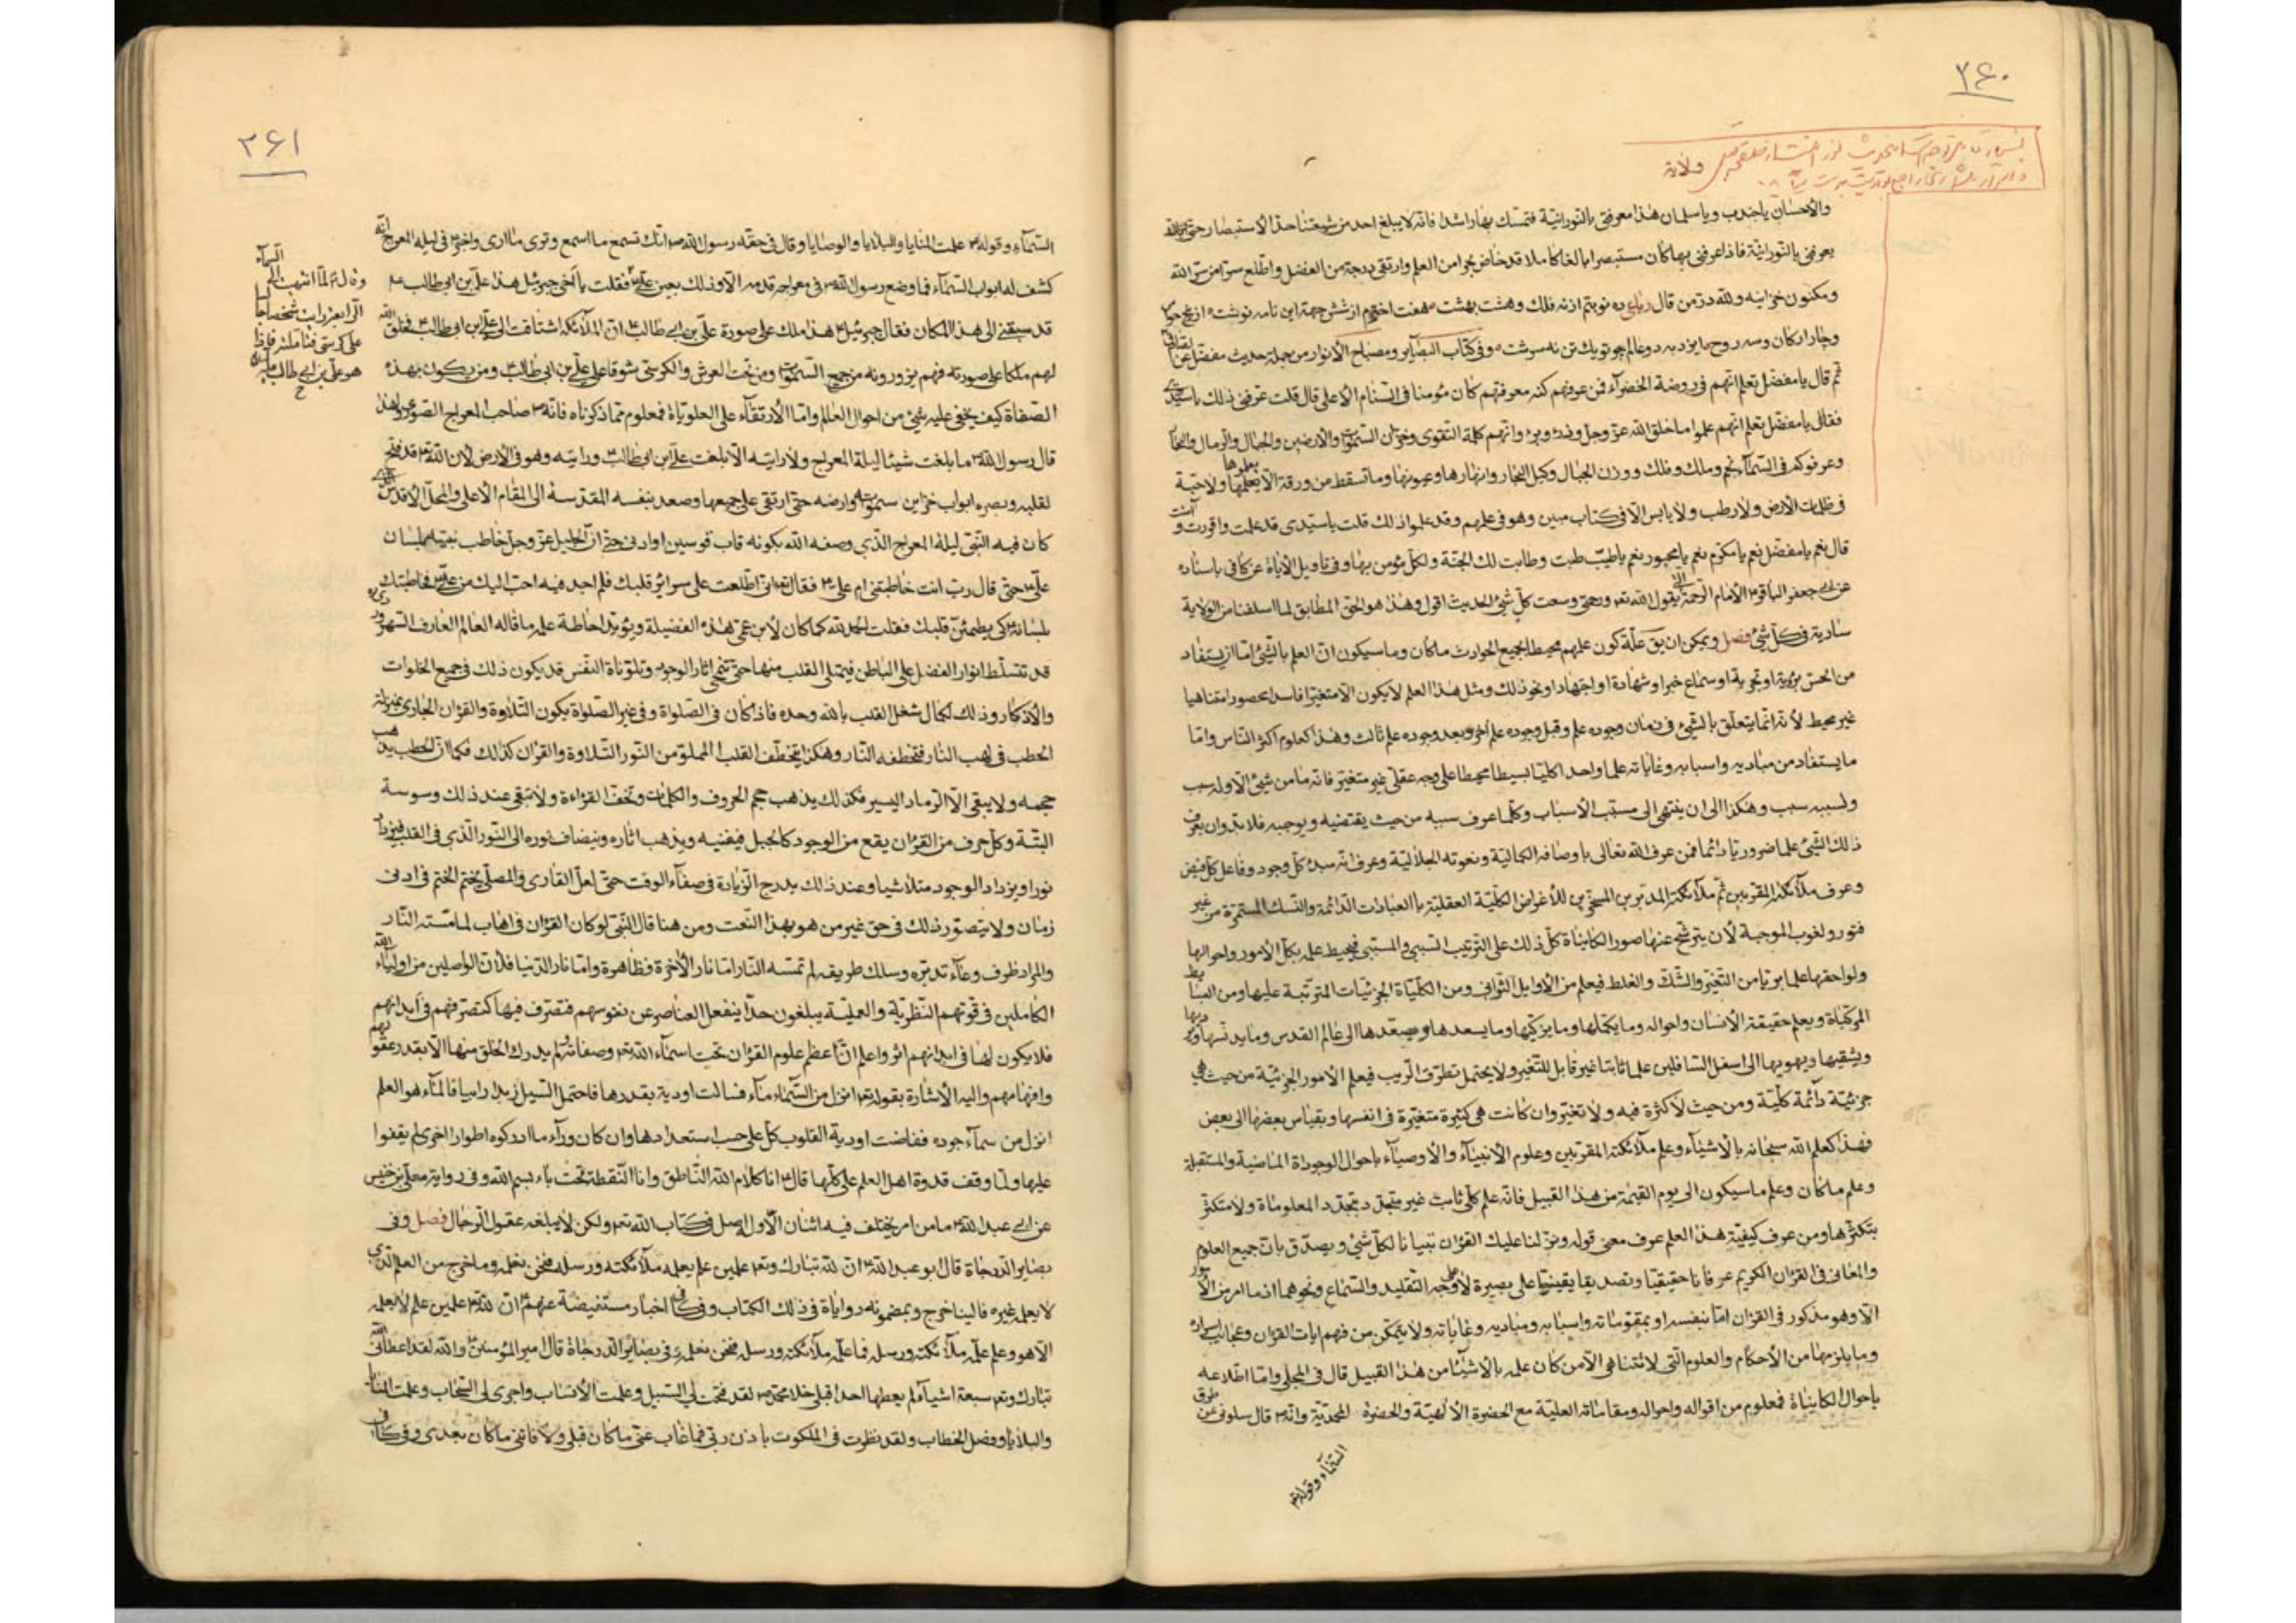 ۳۶۰
والاحسان یا جندب ویا سلمان هذا معرفتی بالنورانیة فتمسك بها راشدا فانه لا یبلغ احد من شیعتنا حد الاستبصار حتی
یعرفنی بالنورانیة فاذا عرفنی بها كان مستبصرا بالغا كاملا قد خاض بحرا من العلم وارتقی درجة من الفضل واطلع سرا من سر الله
ومكنون خزاینه ولله در من قال رباعی ده نوبتم از نه فلك وهشت بهشت هفت اخترم از شش جهة این نامه نوشت از پنج حواس
وچار اركان وسه روح ایزد به دو عالم چو تو یك تن نه سرشت وفی كتاب البصایر ومصباح الانوار من جملة حدیث مفضل عن
ثم قال یا مفضل تعلم انهم فی روضة الخضرآء فمن عرفهم كنه معرفتهم كان مؤمنا فی السنام الاعلی قال قلت عرفنی ذلك یا سیدی
فقال یا مفضل تعلم انهم علموا ما خلق الله عز وجل وذره وبره وانهم كلمة التقوی وخزان السموات والارضین والجبال والرمال والبحار
وعرفوا كم فی السمآء نجم وملك وفلك ووزن الجبال وكیل البحار وانهارها وعیونها وما تسقط من ورقة الا یعلمها ولا حبة
فی ظلمات الارض ولا رطب ولا یابس الا فی كتاب مبین وهو فی علمهم وقد علموا ذلك قلت یا سیدی قد علمت واقررت و
قال نعم یا مفضل نعم یا مكرم نعم یا محبور نعم یا طیب طبت وطابت لك الجنة ولكل مؤمن بها وفی تاویل الایاة عن كافی باسناده
عن ابی جعفر الباقر الامام الرحمة یقول الله ورحمتی وسعت كل شئ الحدیث اقول وهذا هو الحق المطابق لما اسلفنا من الولایة
ساریة فی كل شئ فصل ویمكن ان یق علة كون علمهم محیطا بجمیع الحوادث ما كان وما سیكون ان العلم بالشئ اما ان یستفاد
من الحس برؤیة او تجربة او سماع خبر او شهادة او اجتهاد او نحو ذلك ومثل هذا العلم لا یكون الا متغیرا فاسدا محصورا متناهیا
غیر محیط لانه انما یتعلق بالشئ فی زمان وجوده علم وقبل وجوده علم آخر وبعد وجوده علم ثالث وهذا كعلوم اكثر الناس واما
ما یستفاد من مبادیه واسبابه وغایاته علما واحدا كلیا بسیطا محیطا علی وجه عقلی غیر متغیر فانه ما من شئ الا وله سبب
ولسببه سبب وهكذا الی ان ینتهی الی مسبب الاسباب وكلما عرف سببه من حیث یقتضیه ویوجبه فلا بد وان یعرف
ذلك الشئ علما ضروریا دائما فمن عرف الله تعالی باوصافه الكمالیة ونعوته الجلالیة وعرف انه مبدء كل وجود وفاعل كل فیض
وعرف ملآئكته المقربین ثم ملآئكته المدبرین المسخرین للاغراض الكلیة العقلیة بالعبادات الدائمة والنسك المستمرة من غیر
فتور ولغوب الموجبة لان یترشح عنها صور الكایناة كل ذلك علی الترتیب السببی والمسببی فیحیط علمه بكل الامور واحوالها
ولواحقها علما بریا من التغیر والشك والغلط فیعلم من الاوایل الثوانی ومن الكلیاة الجزئیات المترتبة علیها ومن البسایط
المركباة ویعلم حقیقة الانسان واحواله وما یكملها وما یزكیها وما یسعدها ویصعدها الی عالم القدس وما یدنسها ویردیها
ویشقیها ویهویها الی اسفل السافلین علما ثابتا غیر قابل للتغیر ولا یحتمل تطرق الریب فیعلم الامور الجزئیة من حیث هی
جزئیة دآئمة كلیة ومن حیث لا كثرة فیه ولا تغیر وان كانت هی كثیرة متغیرة فی انفسها وبقیاس بعضها الی بعض
فهذا كعلم الله سبحانه بالاشیآء وعلم ملآئكته المقربین وعلوم الانبیآء والاوصیآء باحوال الموجوداة الماضیة والمستقبلة
وعلم ما كان وعلم ما سیكون الی یوم القیمة من هذا القبیل فانه علم كلی ثابت غیر متجدد بتجدد المعلوماة ولا متكثر
بتكثرها ومن عرف كیفیة هذا العلم عرف معنی قوله ونزلنا علیك القرءان تبیانا لكل شئ ویصدق بان جمیع العلوم
والمعانی فی القرءان الكریم عرفانا حقیقیا وتصدیقا یقینیا علی بصیرة لا علی وجه التقلید والسماع ونحوهما اذ ما امر من الامور
الا وهو مذكور فی القرءان اما بنفسه او بمقوماته واسبابه ومبادیه وغایاته ولا یتمكن من فهم ایات القرءان وعجایب اسراره
وما یلزمها من الاحكام والعلوم التی لا تتناهی الا من كان علمه بالاشیآء من هذا القبیل قال فی المجلی واما اطلاعه
باحوال الكایناة فمعلوم من اقواله واحواله ومقاماته العلیة مع الحضرة الالهیة والحضرة المحمدیة وانه قال سلونی عن طرق
السمآء وقوله
۳۶۱
السمآء وقوله علمت المنایا والبلایا والوصایا وقال فی حقه رسول الله انك تسمع ما اسمع وتری ما اری واخبر فی لیلة المعراج انه
كشف له ابواب السمآء فما وضع رسول الله فی معراجه قدمه الا وذلك بعین علی فقلت یا اخی جبرئیل هذا علی بن ابی طالب
قد سبقنی الی هذا المكان فقال جبرئیل هذا ملك علی صورة علی بن ابی طالب ان الملآئكة اشتاقت الی علی بن ابی طالب فخلق الله
لهم ملكا علی صورته فهم یزورونه من جمیع السموات ومن تحت العرش والكرسی شوقا علی علی بن ابی طالب ومن یكون بهذه
الصفاة كیف یخفی علیه شئ من احوال العالم واما الارتقآء علی العلویاة فمعلوم مما ذكرناه فانه صاحب المعراج الصوری ولهذا
قال رسول الله ما بلغت شیئا لیلة المعراج ولا رایته الا بلغت علی بن ابی طالب ورایته وهو فی الارض لان الله قد فتح
لقلبه وبصره ابواب خزاین سمواته وارضه حتی ارتقی علی جمیعها وصعد بنفسه المقدسة الی المقام الاعلی والمحل الاقدس
كان فیه النبی لیلة المعراج الذی وصفه الله بكونه قاب قوسین او ادنی حتی ان الجلیل عز وجل خاطب نبیه بلسان
علی حتی قال رب انت خاطبتنی ام علی فقال انی اطلعت علی سرائر قلبك فلم اجد فیه احب الیك من علی فخاطبتك
بلسانه كی یطمئن قلبك فقلت الحمد لله كما كان لابن عمی هذه الفضیلة ویؤید احاطة علمه ما قاله العالم العارف السهروردی
قد تتسلط انوار الفضل علی الباطن فیمتلی القلب منها حتی تنمحی اثار الوجود وتلوناة النفس قد یكون ذلك فی جمیع الخلوات
والاذكار وذلك لكمال شغل القلب بالله وحده فاذا كان فی الصلواة وفی غیر الصلواة یكون التلاوة والقرءان الجاری بمنزلة
الحطب فی لهب النار فتخطفه النار وهكذا یتخطف القلب المملو من النور التلاوة والقرءان كذلك فكما ان الحطب یذهب
حجمه ولا یبقی الا الرماد الیسیر فكذلك یذهب حجم الحروف والكلمات وتخف القراءة ولا تبقی عند ذلك وسوسة
البتة وكل حرف من القرءان یقع من الوجود كالجبل فیفنیه ویذهب اثاره وینضاف نوره الی النور الذی فی القلب فیزداد
نورا ویزداد الوجود متلاشیا وعند ذلك یدرج الزیادة فی صفآء الوقت حتی لعل القاری والمصلی یختم الختم فی ادنی
زمان ولا یتصور ذلك فی حق غیر من هو بهذا النعت ومن هنا قال النبی لو كان القرءان فی اهاب لما مسته النار
والمراد ظرف وعآء تدبره وسلك طریقه لم تمسه النار اما نار الاخرة فظاهرة واما نار الدنیا فلان الواصلین من اولیآء الله
الكاملین فی قوتهم النظریة والعملیة یبلغون حدا ینفعل العناصر عن نفوسهم فتصرف فیها كتصرفهم فی ابدانهم
فلا یكون لها فی ابدانهم اثر واعلم ان اعظم علوم القرءان تحت اسمآء الله وصفاته ولم یدرك الخلق منها الا بقدر عقولهم
وافهامهم والیه الاشارة بقوله انزل من السمآء مآء فسالت اودیة بقدرها فاحتمل السیل زبدا رابیا فالمآء هو العلم
انزل من سمآء جوده ففاضت اودیة القلوب كل علی حسب استعدادها وان كان ورآء ما ادركوه اطوار اخری لم یقفوا
علیها ولما وقف قدوة اهل العلم علی كلها قال انا كلام الله الناطق وانا النقطة تحت بآء بسم الله وفی روایة معلی بن خنیس
عن ابی عبد الله ما من امر یختلف فیه اثنان الا وله اصل فی كتاب الله ولكن لا یبلغه عقول الرجال فصل وفی
بصایر الدرجاة قال ابو عبد الله ان لله تبارك وتعالی علمین علم یعلمه ملآئكته ورسله فنحن نعلمه وما خرج من العلم الذی
لا یعلمه غیره فالینا خرج وبمضمونه روایاة فی ذلك الكتاب وفی كافی اخبار مستفیضة عنهم ان لله علمین علم لا یعلمه
الا هو وعلم علمه ملآئكته ورسله فما علمه ملآئكته ورسله فنحن نعلمه وفی بصایر الدرجاة قال امیر المؤمنین والله لقد اعطانی الله
تبارك وتعالی سبعة اشیآء لم یعطها احدا قبلی خلا محمد لقد فتحت لی السبیل وعلمت الانساب واجری لی السحاب وعلمت المنایا
والبلایا وفصل الخطاب ولقد نظرت فی الملكوت باذن ربی فما غاب عنی ما كان قبلی ولا فاتنی ما كان بعدی وفی كافی
السمآء
وقال لما انتهیت الی
الرابعة رایت شخصا جالسا
علی كرسی فتاملته فاذا
هو علی بن ابی طالب